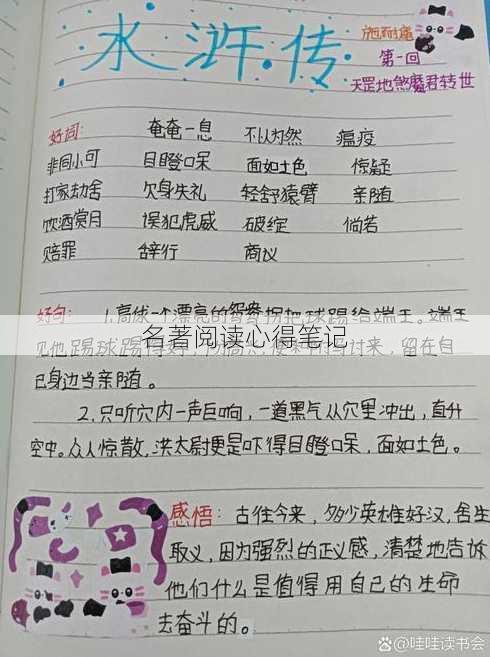 水浒传
施耐庵
第一回
天罡地煞魔君转世
好词: 奄奄一息 不以为然 瘟疫
非同小可 目瞪口呆 面如土色 惊疑
打家劫舍 欠身失礼 轻舒猿臂 亲随
饮酒赏月 误犯虎威 破绽 倘若
赔罪 辞行 商议
好句: 1.高俅一个漂亮的鸳鸯拐把球踢给端王。端王
名著阅读心得笔记
见他踢球踢得好, 讨来, 留在自
己身边当亲随。
2.只听穴内一声巨响,一道黑气从穴里冲出,直升
空中。众人惊散,洪太尉更是吓得目瞪口呆,面如土色。
感悟: 古往今来,多少英雄好汉,舍生
取义,因为强烈的正义感,清楚地告诉
他们什么是值得用自己的生命
去奋斗的。
@哇哇读书会